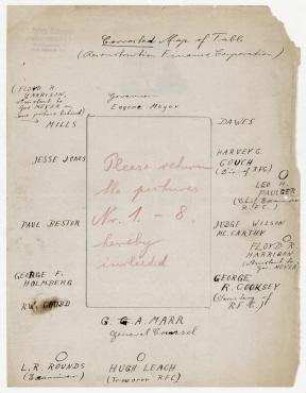 Corrected Map of Table
(Reconstruction Finance Corporation)
(FLOYD R.
HARRISON,
Assistant to
Gov. MEYER in
one picture behind)
MILLS
Governor
Eugene Meyer
DAWES
JESSE JONES
HARVEY C.
COUCH
(Dir. of RFC)
LEO
PAULGER
(Chief Examiner
R.F.C.)
Please return
the pictures
Nr. 1. - 8.
hereby
included
PAUL BESTOR
JUDGE WILSON
McCARTHY
FLOYD R
HARRISON
(Assistant to
Gov. MEYER)
GEORGE F.
HOLMBERG
GEORGE
R. COOKSEY
(Secretary of
RFC)
G. G A. MARR
general Counsel
L.R ROUNDS
(Examiner)
HUGH LEACH
RFC)